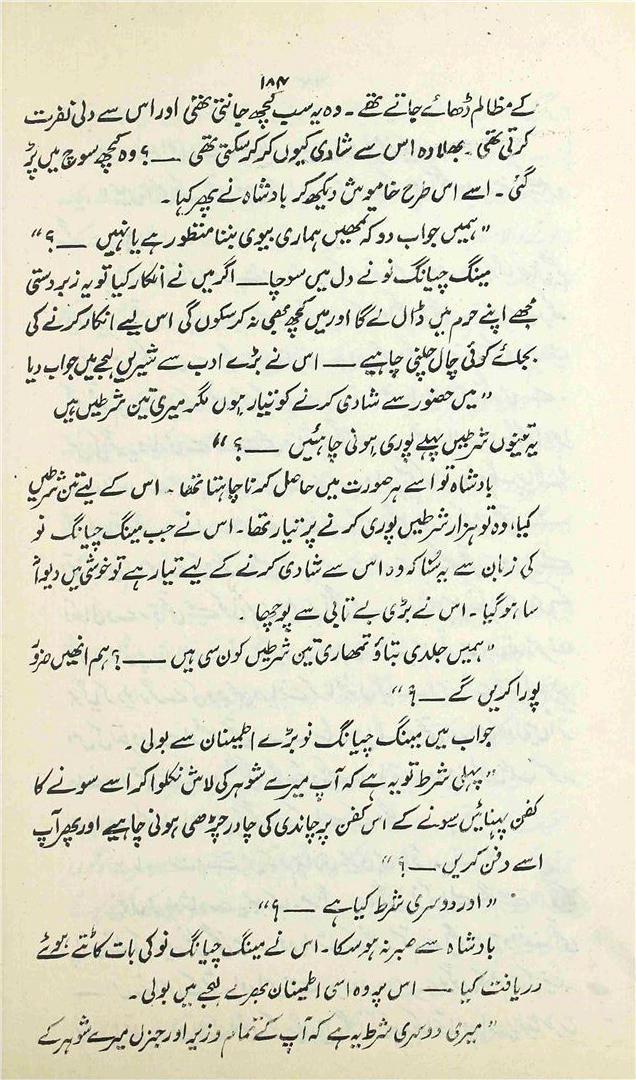 ۱۸۴
کے مظالم ڈھائے جاتے تھے۔ وہ یہ سب کچھ جانتی تھی اور اس سے دلی نفرت
کرتی تھی۔ بھلا وہ اس سے شادی کیوں کر کر سکتی تھی ــــ؟ وہ کچھ سوچ میں پڑ
گئی۔ اسے اس طرح خاموش دیکھ کر بادشاہ نے پھر کہا۔
"ہمیں جواب دو کہ تمھیں ہماری بیوی بننا منظور ہے یا نہیں ــــ؟"
مینگ چیانگ نو نے دل میں سوچا ــــ اگر میں نے انکار کیا تو یہ زبردستی
مجھے اپنے حرم میں ڈال لے گا اور میں کچھ بھی نہ کر سکوں گی اس لیے انکار کرنے کی
بجائے کوئی چال چلنی چاہیے ــــ اس نے بڑے ادب سے شیریں لہجے میں جواب دیا
"میں حضور سے شادی کرنے کو تیار ہوں مگر میری تین شرطیں ہیں
یہ تینوں شرطیں پہلے پوری ہونی چاہئیں ــــ؟"
بادشاہ تو اسے ہر صورت میں حاصل کرنا چاہتا تھا۔ اس کے لیے تین شرطیں
کیا، وہ تو ہزار شرطیں پوری کرنے پر تیار تھا۔ اس نے جب مینگ چیانگ نو
کی زبان سے یہ سُنا کہ وہ اس سے شادی کرنے کے لیے تیار ہے تو خوشی میں دیوانہ
سا ہو گیا۔ اس نے بڑی بے تابی سے پوچھا۔
"ہمیں جلدی بتاؤ تمھاری تین شرطیں کون سی ہیں ــــ؟ ہم انھیں ضرور
پورا کریں گے ــــ؟"
جواب میں مینگ چیانگ نو بڑے اطمینان سے بولی۔
"پہلی شرط تو یہ ہے کہ آپ میرے شوہر کی لاش نکلوا کر اسے سونے کا
کفن پہنائیں سونے کے اس کفن پہ چاندی کی چادر چڑھی ہونی چاہیے اور پھر آپ
اسے دفن کریں ــــ؟"
"اور دوسری شرط کیا ہے ــــ؟"
بادشاہ سے صبر نہ ہو سکا۔ اس نے مینگ چیانگ نو کی بات کاٹتے ہوئے
دریافت کیا ــــ اس پہ وہ اسی اطمینان بھرے لہجے میں بولی۔
"میری دوسری شرط یہ ہے کہ آپ کے تمام وزیر اور جنرل میرے شوہر کے